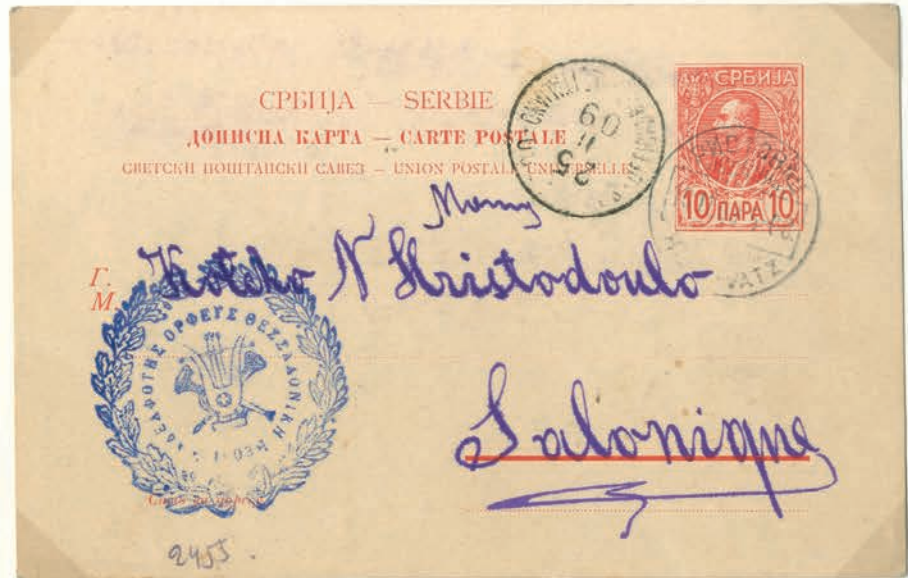 СРБИЈА — SERBIE
ДОПИСНА КАРТА — CARTE POSTALE
СВЕТСКИ ПОШТАНСКИ САВЕЗ — UNION POSTALE UNIVERSELLE
СРБИЈА
10 ПАРА 10
09
Г.
М.
N Hristodoulo
ΑΔΕΛΦΟΤΗΣ ΟΡΦΕΥΣ ΘΕΣΣΑΛΟΝΙΚΗ
Salonique
2455.